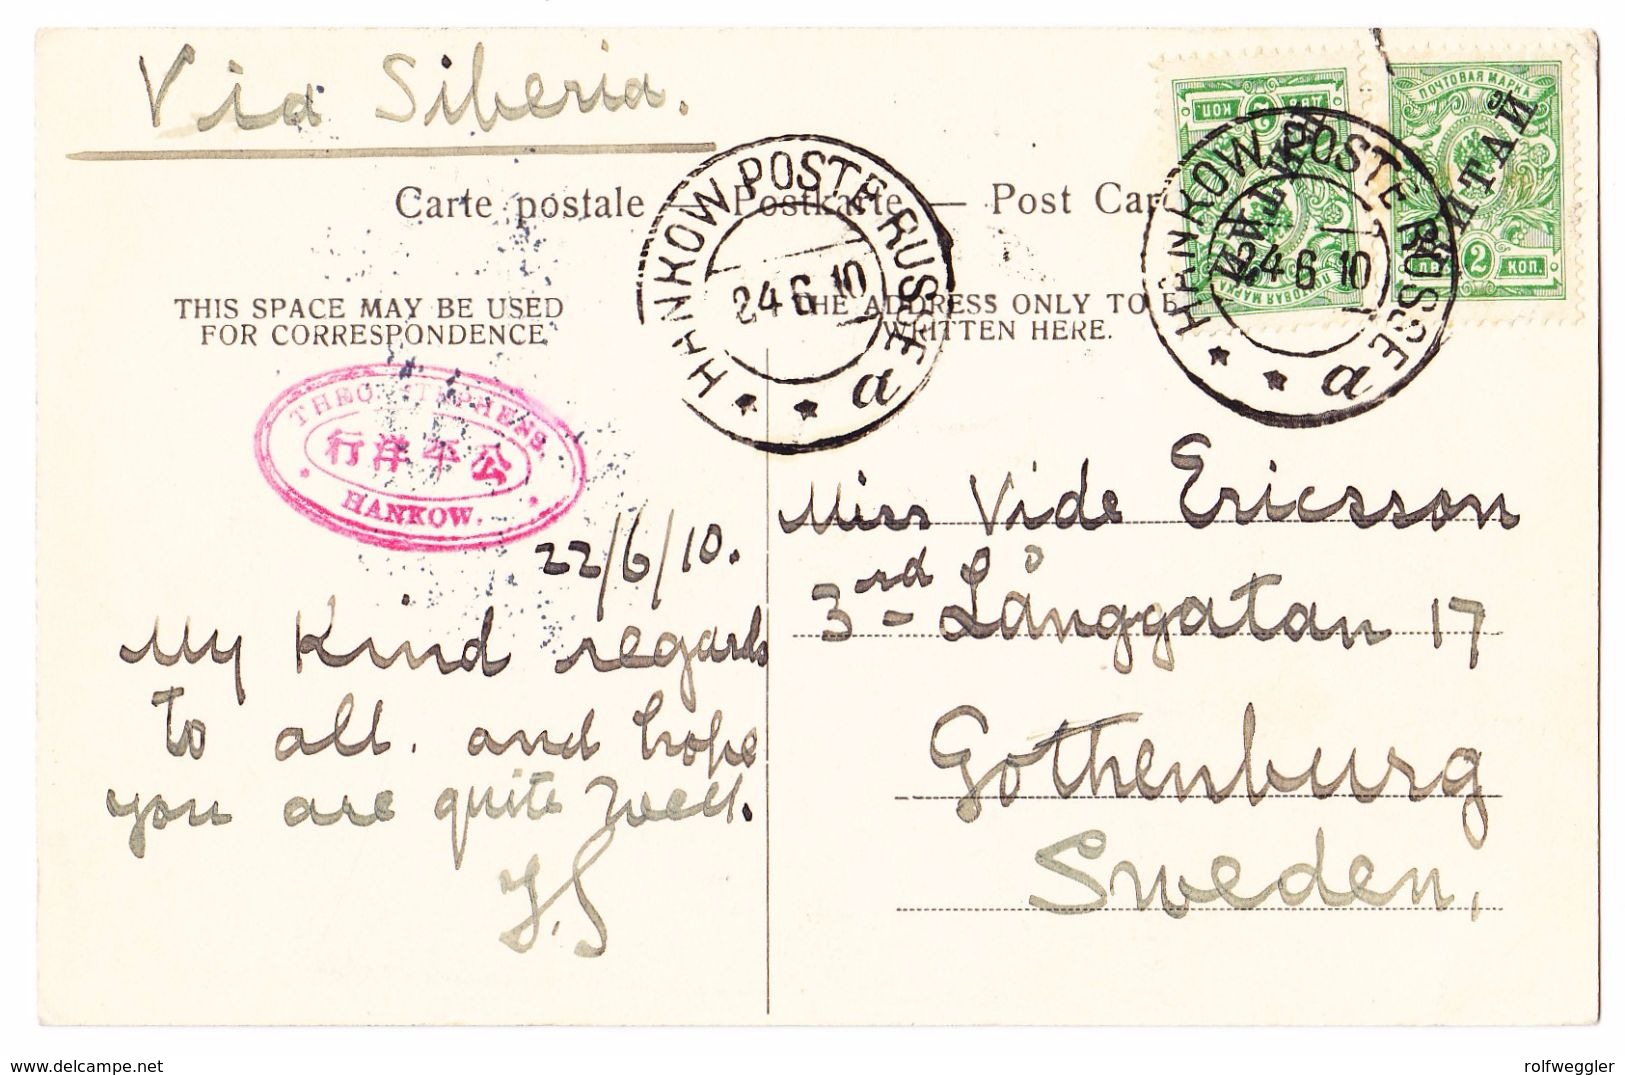 Via Siberia.
Carte postale — Postkarte — Post Car
THIS SPACE MAY BE USED
FOR CORRESPONDENCE
THE ADDRESS ONLY TO B
WRITTEN HERE.
HANKOW POSTE RUSSE
24 6 10
a
HANKOW POSTE RUSSE
24 6 10
a
ПОЧТОВАЯ МАРКА
КИТАЙ
2
КОП.
ПОЧТОВАЯ МАРКА
КИТАЙ
ДВѢ 2 КОП.
THEO. STEPHENS.
行洋平公
HANKOW.
22/6/10.
My Kind regards
to all. and hope
you are quite well.
Miss Vide Ericsson
3rd - Långgatan 17
Gothenburg
Sweden,
delcampe.net
rolfweggler